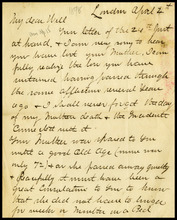 London April 2nd
My dear Will
Your letter of the 21st just
at hand, & I am very sorry to hear
you have lost your Mother. I can
fully realize the loss you have
sustained having passed through
the same affliction several years
ago & I shall never forget the day
of my Mothers death & the President
Your Mother was spared to you
until a good old age (mine was
only 72) & as she passed away quietly
& peacefully it must have been a
great consolation to you to know
that she did not have to linger
for weeks or months on a Bed